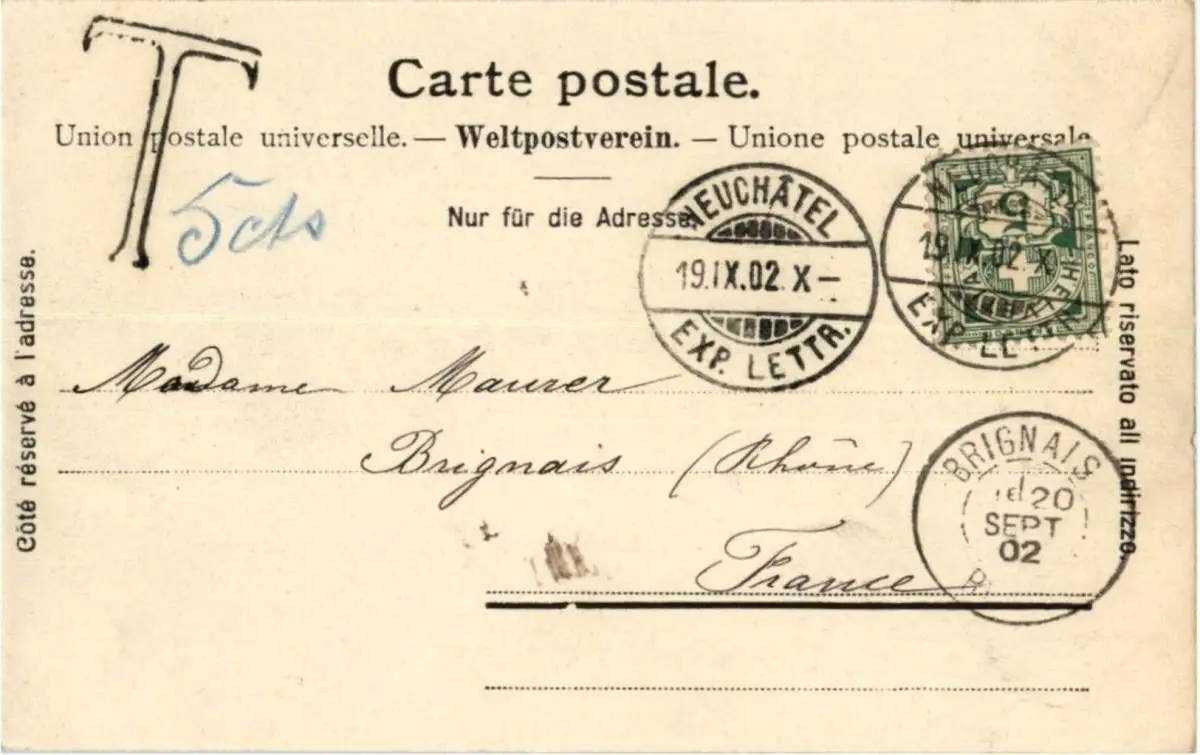 T
Carte postale.
Union postale universelle. — Weltpostverein. — Unione postale universale
5 cts
Nur für die Adresse.
NEUCHÂTEL
19.IX.02.X–
EXP. LETTR.
5
HELVETIA
FRANCO
19.IX.02.X
EXP. LETTR.
Côté réservé à l'adresse.
Lato riservato all indirizzo.
Madame Maurer
Brignais (Rhône)
France
BRIGNAIS
20
SEPT
02